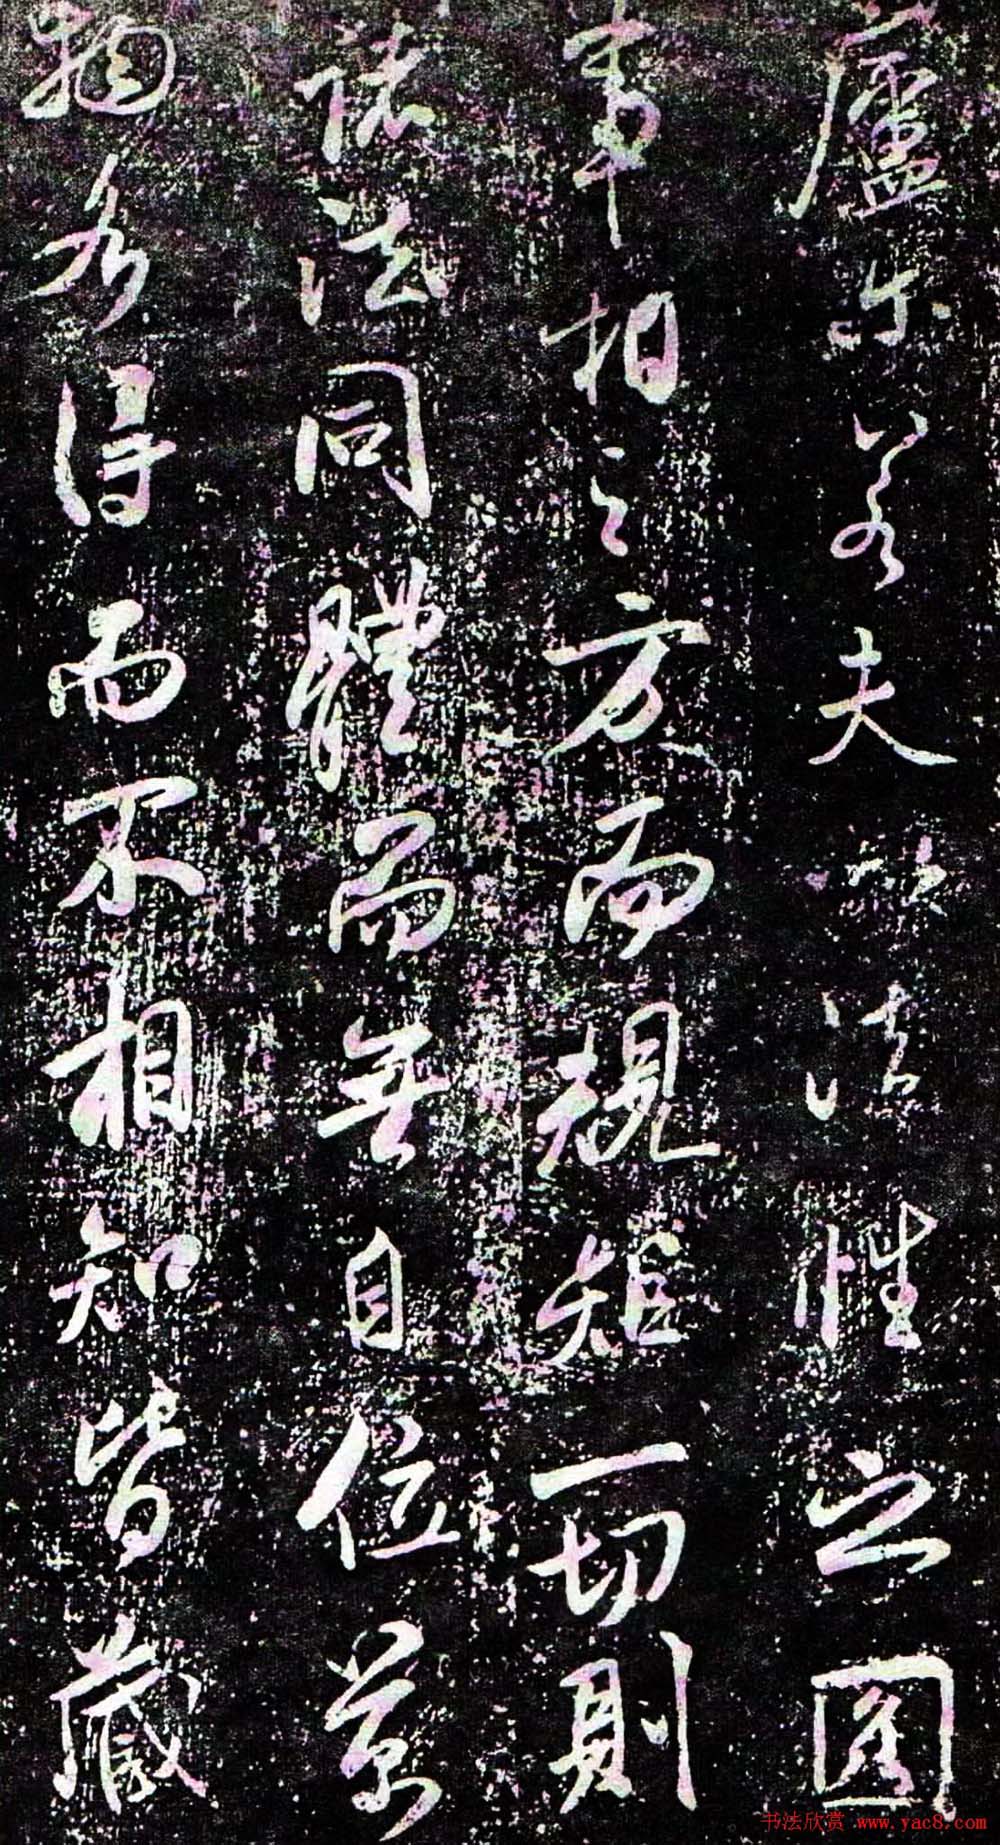 廬尔若夫以法性之圓
事相之方而規矩一切則
諸法同體而無自位萬
物各得而不相知皆藏
书法欣赏 www.yac8.com